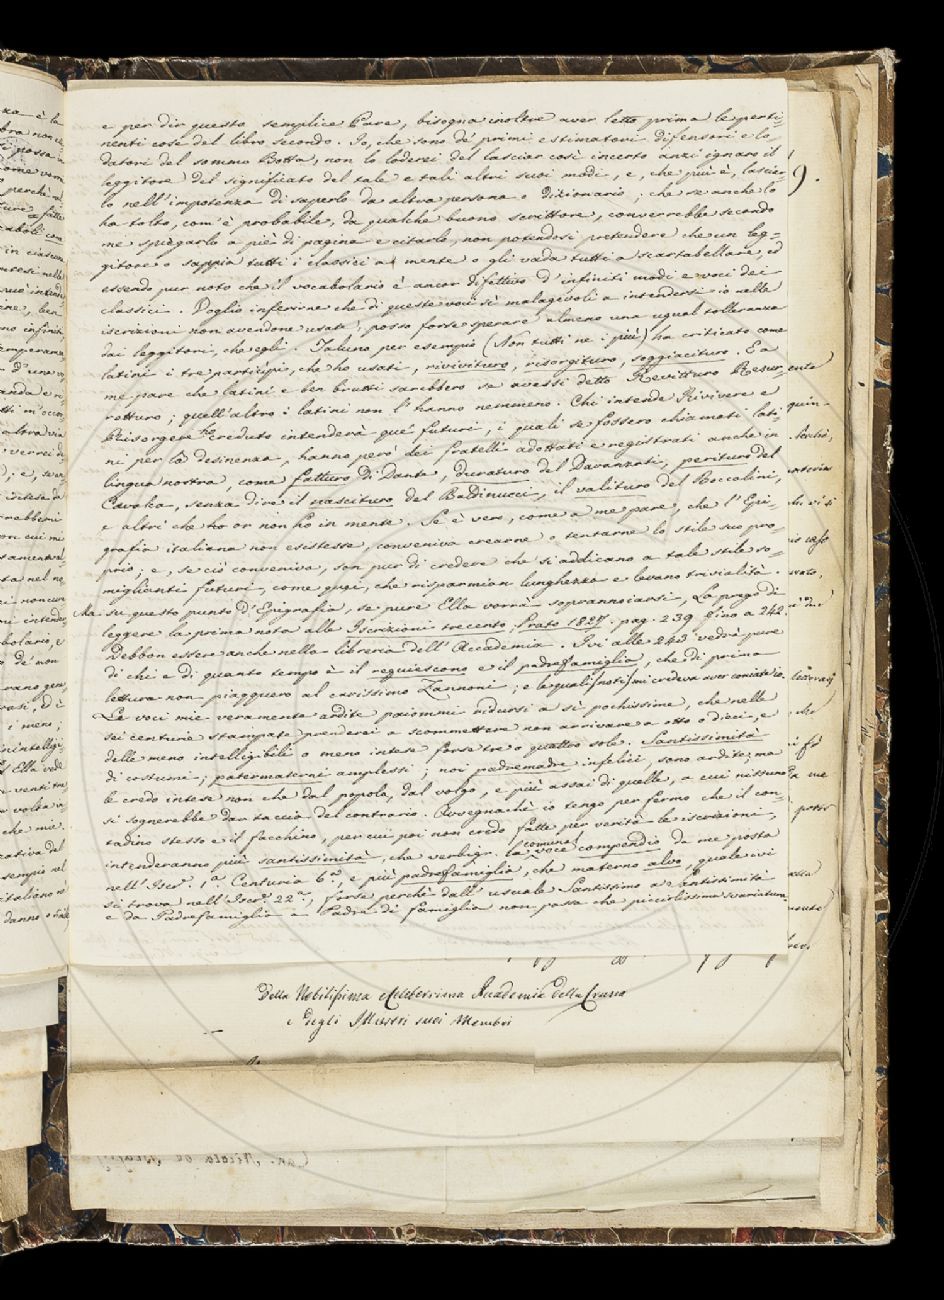 e per dir questo semplice Pare, bisogna inoltre aver letto prima le perti-
nenti cose del libro secondo. Io, che sono de' primi estimatori difensori e lo-
datori del sommo Botta, non lo loderei del lasciar così incerto anzi ignaro il
leggitore del significato del tale e tali altri suoi modi, e, che più è, lasciar-
lo nell'impotenza di saperlo da altra persona o dizionario; che se anche lo
ha tolto, com'è probabile, da qualche buono scrittore, converrebbe secondo
me spiegarlo a piè di pagina e citarlo, non potendosi pretendere che un leg-
gitore o sappia tutti i classici a mente o gli vada tutti a scartabellare, ed
essendo pur noto che il vocabolario è ancor difettivo d'infiniti modi e voci dei
classici. Voglio inferirne che di queste voci sì malagevoli a intendersi io nelle
iscrizioni non avendone usate, posso forse sperare almeno una ugual tolleranza
dai leggitori, che egli. Taluno per esempio (Non tutti nè i più) ha criticato come
latini i tre participi, che ho usati, rivivituro, risorgituro, soggiacituro. E a
me pare che latini e ben brutti sarebbero se avessi detto Revitturo Resur-
rotturo; quell'altro i latini non l'hanno nemmeno. Chi intende Rivivere e
Risorgere creduto intenderà que' futuri, i quali se fossero chiamati lati-
ni per la desinenza, hanno però dei fratelli adottati e registrati anche in
lingua nostra, come fatturo di Dante, duraturo del Davanzati, perituro del
Cavalca, senza dire il nascituro del Baldinucci, il valituro del Boccalini,
e altri che or non ho in mente. Se è vero, come a me pare, che l'Epi-
grafia italiana non esistesse, conveniva crearne o tentarne lo stile suo pro-
prio; e, se ciò conveniva, son pur di credere che si addicano a tale stile so-
miglianti futuri, come quei, che risparmian lunghezza e levano trivialità.
Ma su questo punto d'Epigrafia, se pure Ella vorrà soprannoiarsi, La prego di
leggere la prima nota alle Iscrizioni trecento, Prato 1827. pag. 239 fino a 242.
Debbon essere anche nella libreria dell'Accademia. Ivi alle 243 vedrà pure
di chi e di quanto tempo è il requiescono e il padrefamiglia, che di prima
lettura non piacquero al carissimo Zannoni; e le quali (noti) mi credeva aver coniate io.
Le voci mie veramente ardite paiommi ridursi a sì pochissime, che nelle
sei centurie stampate prenderei a scommettere non arrivare a otto o dieci, e
delle meno intelligibili o meno intese forse tre o quattro sole. Santissimità
di costumi; patermaterni amplessi; noi padremadre infelici, sono ardite; ma
le credo intese non che dal popolo, dal volgo, e più assai di quelle, a cui nissuno
si sognerebbe dar taccia del contrario. Avvegnachè io tengo per fermo che il con-
tadino stesso e il facchino, per cui poi non credo fatte per verità le iscrizioni,
intenderanno più santissimità, che verbigr. la voce comune compendio da me posta
nell'Iscr. 1.a Centuria 6.a, e più padrefamiglia, che materno alvo, quale ivi
si trova nell'Iscr. 22.a, forse perchè dall'usuale Santissimo a Santissimità
e da Padrefamiglia a Padre di famiglia non passa che piccolissima svariatura
Della Nobilissima e Celeberrima Accademia della Crusca
e degli Illustri suoi Membri